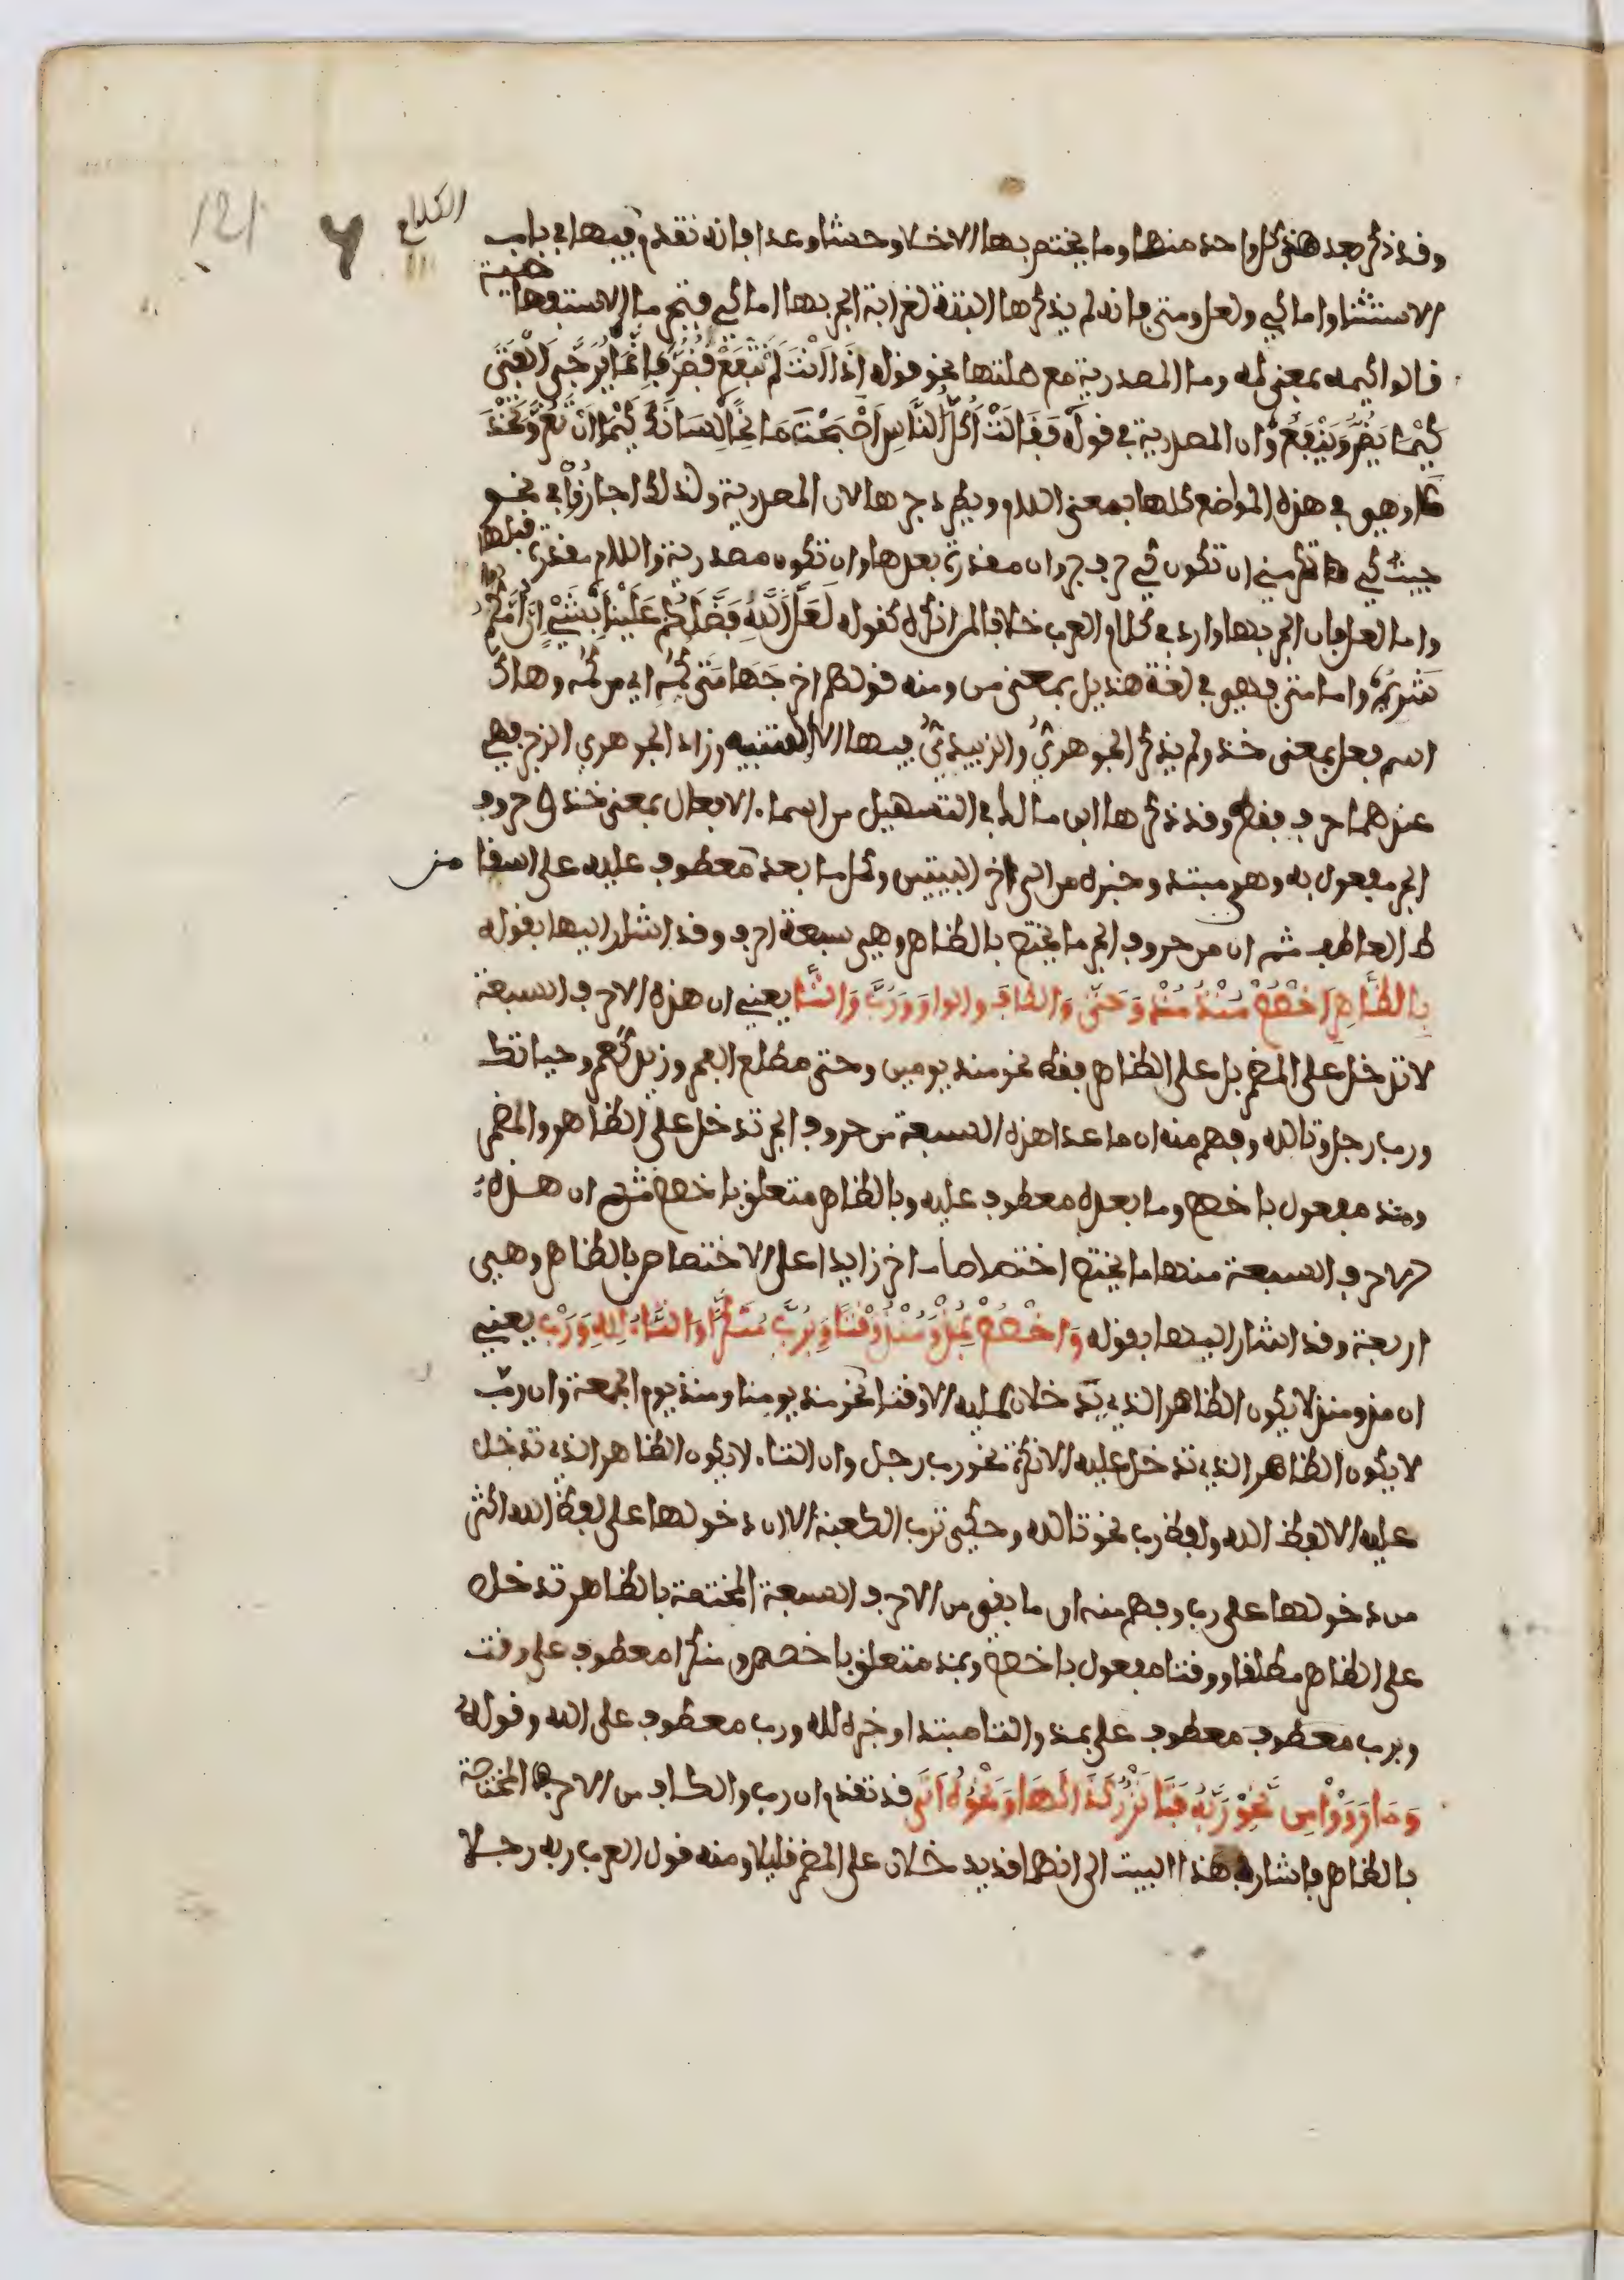 121
الكلام
وقد ذكر بعد هذا كل واحد منها وما يختص بها الا خلا وحشا وعدا فانه تقدم فيها في باب
الاستثنا واما كي ولعل ومتى فانه لم يذكرها البتة لغرابة الجر بها اما كي فتجر ما الاستفهامية
قالوا كيمه بمعنى لمه وما المصدرية مع صلتها نحو قوله اِذَا اَنْتَ لَمْ تَنْفَعْ فَضُرَّ فَاِنَّمَا يُرَجَّى الْفَتَى
كَيْمَا يَضُرُّ وَيَنْفَعُ وان المصدرية في قوله فَقَالَتْ اَكُلَّ النَّاسِ اَصْبَحْتَ مَانِحًا لِسَانَكَ كَيْمَا اَنْ تَغُرَّ وَتَخْدَ
عَا وهي في هذه المواضع كلها بمعنى اللام ويطرد جرها لان المصدرية ولذلك اجازوا في نحو
جيت كي تكرمني ان تكون كي حرف جر وان مقدرة بعدها وان تكون مصدرية واللام مقدرة قبلها
واما لعل فان الجر بها وارد في كلام العرب خلافا لمن انكره كقوله لَعَلَّ اللَّهِ فَضَّلَكُمْ عَلَيْنَا بِشَيْءٍ اِنَّ اُمَّكُمُ
شَرِيمُ واما متى فهي في لغة هذيل بمعنى من ومنه قولهم اخرجها متى كمه اي من كمه وهاك
اسم فعل بمعنى خذ ولم يذكر الجوهري والزبيدي فيها الا التنبيه وزاد الجوهري الزجر فهي
عندهما حرف فقط وقد ذكرها ابن مالك في التسهيل من اسماء الافعال بمعنى خذ وحروف
الجر مفعول به وهي مبتدا وخبره من الى اخر البيتين وكل ما بعد من معطوف عليه على اسقا
ط العاطف ثم ان من حروف الجر ما يختص بالظاهر وهي سبعة احرف وقد اشار اليها بقوله
بِالظَّاهِرِ اخْصُصْ مُنْذُ مُذْ وَحَتَّى وَالكَافَ وَالوَاوَ وَرُبَّ وَالتَّا يعني ان هذه الاحرف السبعة
لا تدخل على المضمر بل على الظاهر فقط نحو منذ يومين وحتى مطلع الفجر وزيد كعمر وحياتك
ورب رجل وتالله وفهم منه ان ما عدا هذه السبعة من حروف الجر تدخل على الظاهر والمضمر
ومنذ مفعول باخصص وما بعده معطوف عليه وبالظاهر متعلق باخصص ثم ان هذه
الاحرف السبعة منها ما يختص اختصاصا اخر زايدا على الاختصاص بالظاهر وهي
اربعة وقد اشار اليها بقوله وَاخْصُصْ بِمُذْ وَمُنْذُ وَقْتًا وَبِرُبَّ مُنَكَّرًا وَالتَّاءُ لِلهِ وَرَبْ يعني
ان مذ ومنذ لا يكون الظاهر الذي يدخلان عليه الا وقتا نحو منذ يومنا ومنذ يوم الجمعة وان رب
لا يكون الظاهر الذي تدخل عليه الا نكرة نحو رب رجل وان التاء لا يكون الظاهر الذي تدخل
عليه الا لفظ الله ولفظ رب نحو تالله وحكي ترب الكعبة الا ان دخولها على لفظ الله اكثر
من دخولها على رب وفهم منه ان ما بقي من الاحرف السبعة المختصة بالظاهر تدخل
على الظاهر مطلقا ووقتا مفعول باخصص وبمذ متعلق باخصص ومنكرا معطوف على وقت
وبرب معطوف معطوف على بمذ والتا مبتدا وخبره لله ورب معطوف على الله وقوله
وَمَا رَوَوْا مِنْ نَحْوِ رُبَّهُ فَتَى نَزْرٌ كَذَا كَهَا وَنَحْوُهُ اَتَى قد تقدم ان رب والكاف من الاحرف المختصة
بالظاهر فاشار في هذا البيت الى انهما قد يدخلان على المضمر قليلا ومنه قول العرب ربه رجلا